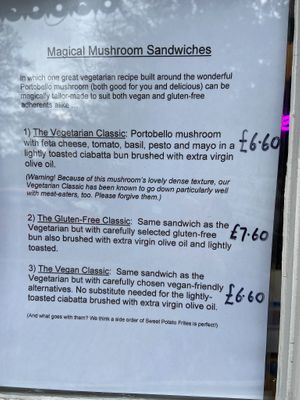 Magical Mushroom Sandwiches
In which one great vegetarian recipe built around the wonderful
Portobello mushroom (both good for you and delicious) can be
magically tailor-made to suit both vegan and gluten-free
adherents alike ...
1) The Vegetarian Classic: Portobello mushroom
with feta cheese, tomato, basil, pesto and mayo in a
lightly toasted ciabatta bun brushed with extra virgin
olive oil.
£6.60
(Warning! Because of this mushroom's lovely dense texture, our
Vegetarian Classic has been known to go down particularly well
with meat-eaters, too. Please forgive them.)
2) The Gluten-Free Classic: Same sandwich as the
Vegetarian but with carefully selected gluten-free
bun also brushed with extra virgin olive oil and lightly
toasted.
£7.60
3) The Vegan Classic: Same sandwich as the
Vegetarian but with carefully chosen vegan-friendly
alternatives. No substitute needed for the lightly-
toasted ciabatta brushed with extra virgin olive oil.
£6.60
(And what goes with them? We think a side order of Sweet Potato Frites is perfect!)